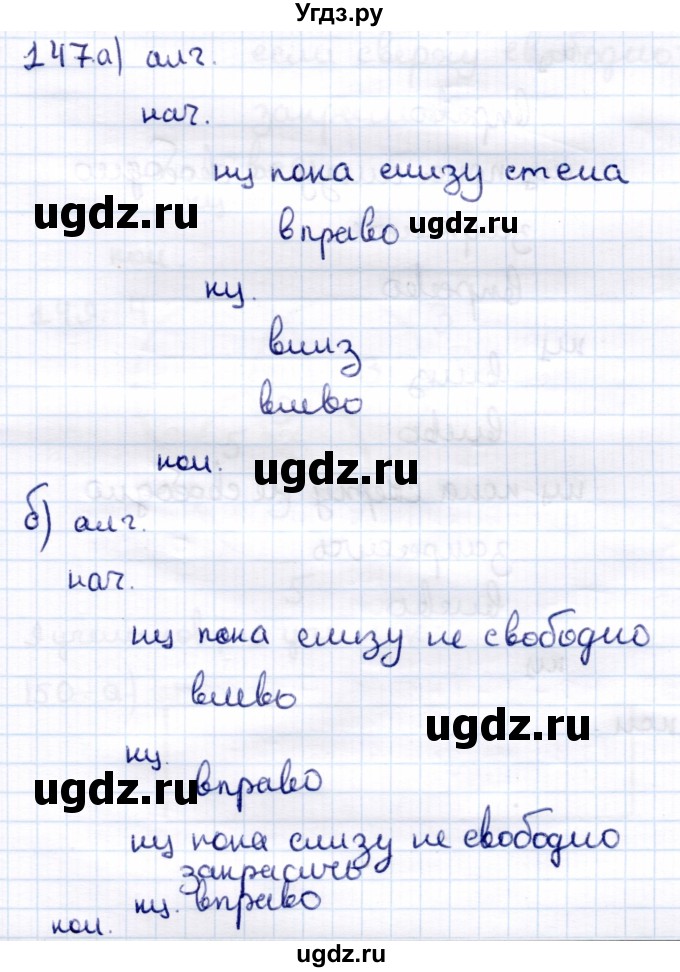 Угдз.ру
147.а) алг.
нач.
нц пока снизу стена
ugdz.ru
вправо ugdz.ru
кц.
вниз
влево
кон. ugdz.ru
б) алг.
нач.
нц пока снизу не свободно
влево
ugdz.ru
кц.
ugdz.ru вправо
нц пока снизу не свободно
закрасить
кц. вправо
кон.
ugdz.ru